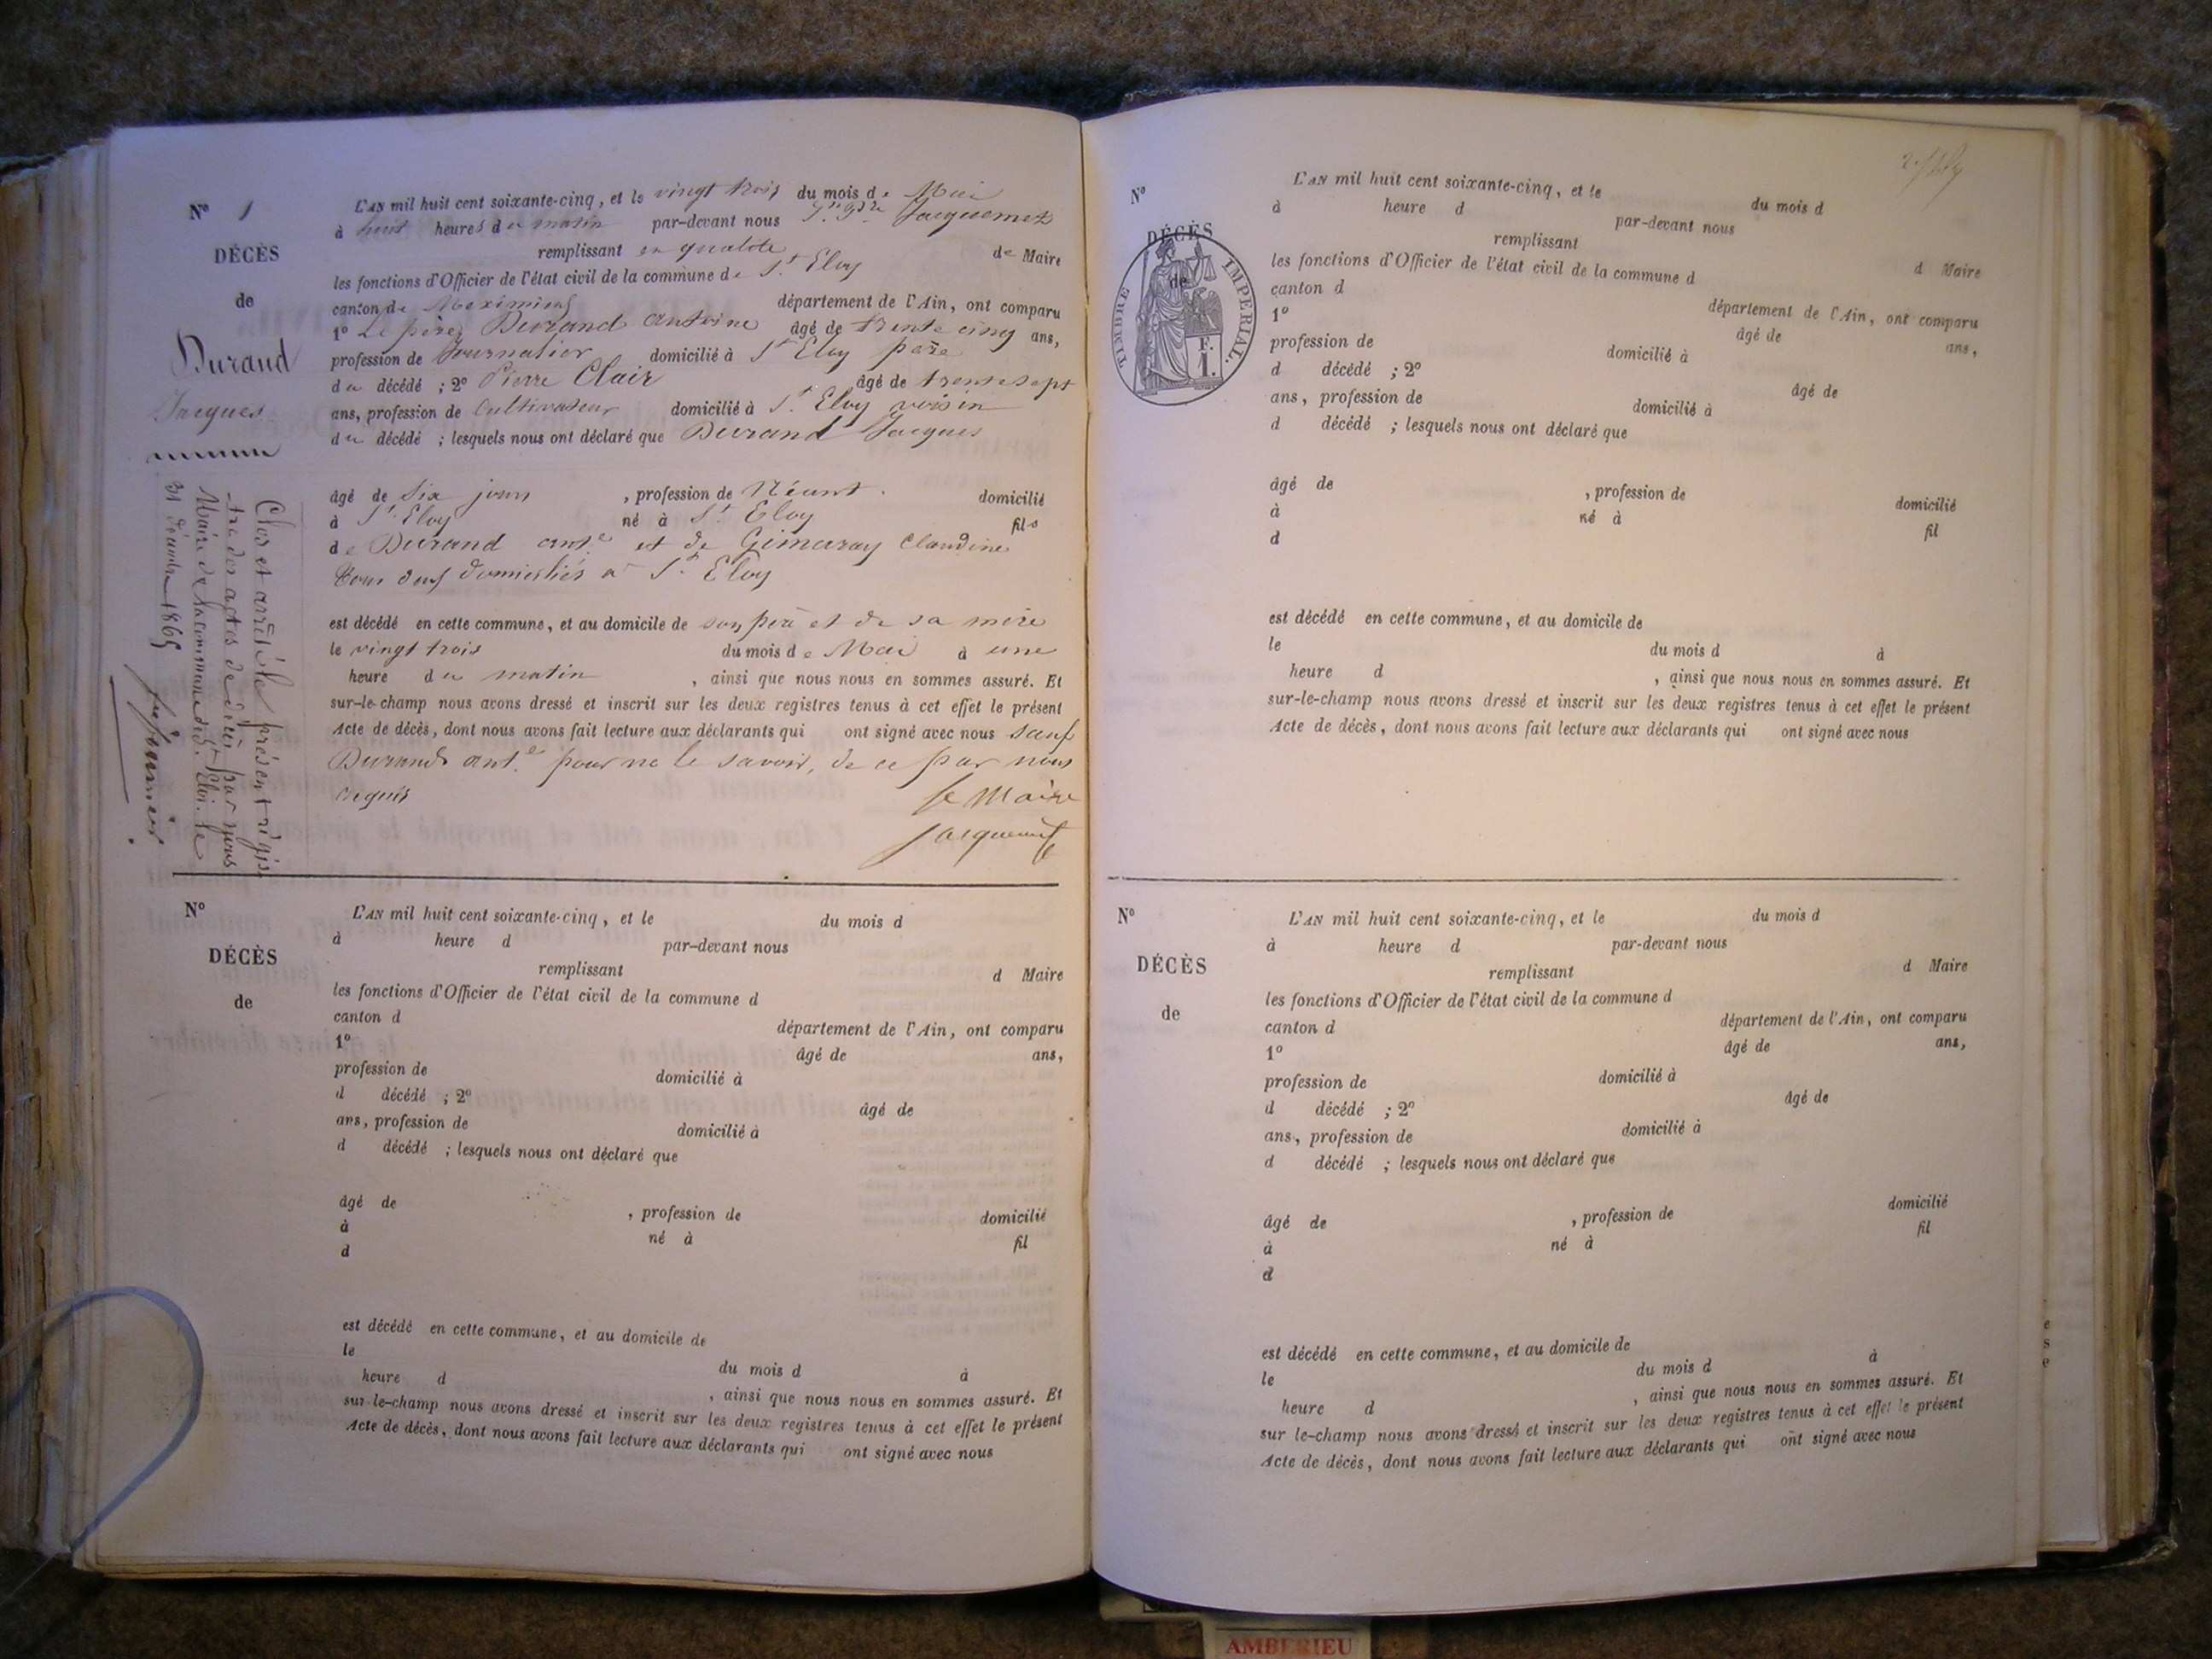 Nº 1
DÉCÈS
de
Durand
Jacques
L'AN mil huit cent soixante-cinq, et le vingt trois du mois de Mai
à huit heures du matin par-devant nous Jacquemet
remplissant en qualité de Maire
les fonctions d'Officier de l'état civil de la commune de St Eloy
canton de Meximieux département de l'Ain, ont comparu
1º Le père, Durand antoine âgé de trente cinq ans,
profession de Journalier domicilié à St Eloy père
du décédé ; 2º Pierre Clair âgé de trente sept
ans, profession de Cultivateur domicilié à St Eloy voisin
du décédé ; lesquels nous ont déclaré que Durand Jacques
âgé de six jours , profession de Néant. domicilié
à St Eloy né à St Eloy fils
de Durand ant.e et de Gimaray Claudine
tous deux domiciliés à St Eloy
est décédé en cette commune, et au domicile de son père et de sa mère
le vingt trois du mois de Mai à une
heure du matin , ainsi que nous nous en sommes assuré. Et
sur-le-champ nous avons dressé et inscrit sur les deux registres tenus à cet effet le présent
Acte de décès, dont nous avons fait lecture aux déclarants qui ont signé avec nous sauf
Durand ant.e pour ne le savoir, de ce par nous
requis
le Maire
Jacquemet
Clos et arrêté le présent régis-
tre des actes de décès par nous
Maire de la commune de St Eloi. le
31 décembre 1865
Nº
DÉCÈS
de
L'AN mil huit cent soixante-cinq, et le du mois d
à heure d par-devant nous
remplissant d Maire
les fonctions d'Officier de l'état civil de la commune d
canton d département de l'Ain, ont comparu
1º âgé de ans,
profession de domicilié à
d décédé ; 2º âgé de
ans, profession de domicilié à
d décédé ; lesquels nous ont déclaré que
âgé de , profession de domicilié
à né à fil
d
est décédé en cette commune, et au domicile de
le du mois d à
heure d , ainsi que nous nous en sommes assuré. Et
sur-le-champ nous avons dressé et inscrit sur les deux registres tenus à cet effet le présent
Acte de décès, dont nous avons fait lecture aux déclarants qui ont signé avec nous
Nº
DÉCÈS
de
TIMBRE IMPERIAL.
F.
1.
L'AN mil huit cent soixante-cinq, et le du mois d
à heure d par-devant nous
remplissant d Maire
les fonctions d'Officier de l'état civil de la commune d
canton d département de l'Ain, ont comparu
1º âgé de ans,
profession de domicilié à
d décédé ; 2º âgé de
ans, profession de domicilié à
d décédé ; lesquels nous ont déclaré que
âgé de , profession de domicilié
à né à fil
d
est décédé en cette commune, et au domicile de
le du mois d à
heure d , ainsi que nous nous en sommes assuré. Et
sur-le-champ nous avons dressé et inscrit sur les deux registres tenus à cet effet le présent
Acte de décès, dont nous avons fait lecture aux déclarants qui ont signé avec nous
Nº
DÉCÈS
de
L'AN mil huit cent soixante-cinq, et le du mois d
à heure d par-devant nous
remplissant d Maire
les fonctions d'Officier de l'état civil de la commune d
canton d département de l'Ain, ont comparu
1º âgé de ans,
profession de domicilié à
d décédé ; 2º âgé de
ans, profession de domicilié à
d décédé ; lesquels nous ont déclaré que
âgé de , profession de domicilié
à né à fil
d
est décédé en cette commune, et au domicile de
le du mois d à
heure d , ainsi que nous nous en sommes assuré. Et
sur le-champ nous avons dressé et inscrit sur les deux registres tenus à cet effet le présent
Acte de décès, dont nous avons fait lecture aux déclarants qui ont signé avec nous
AMBERIEU